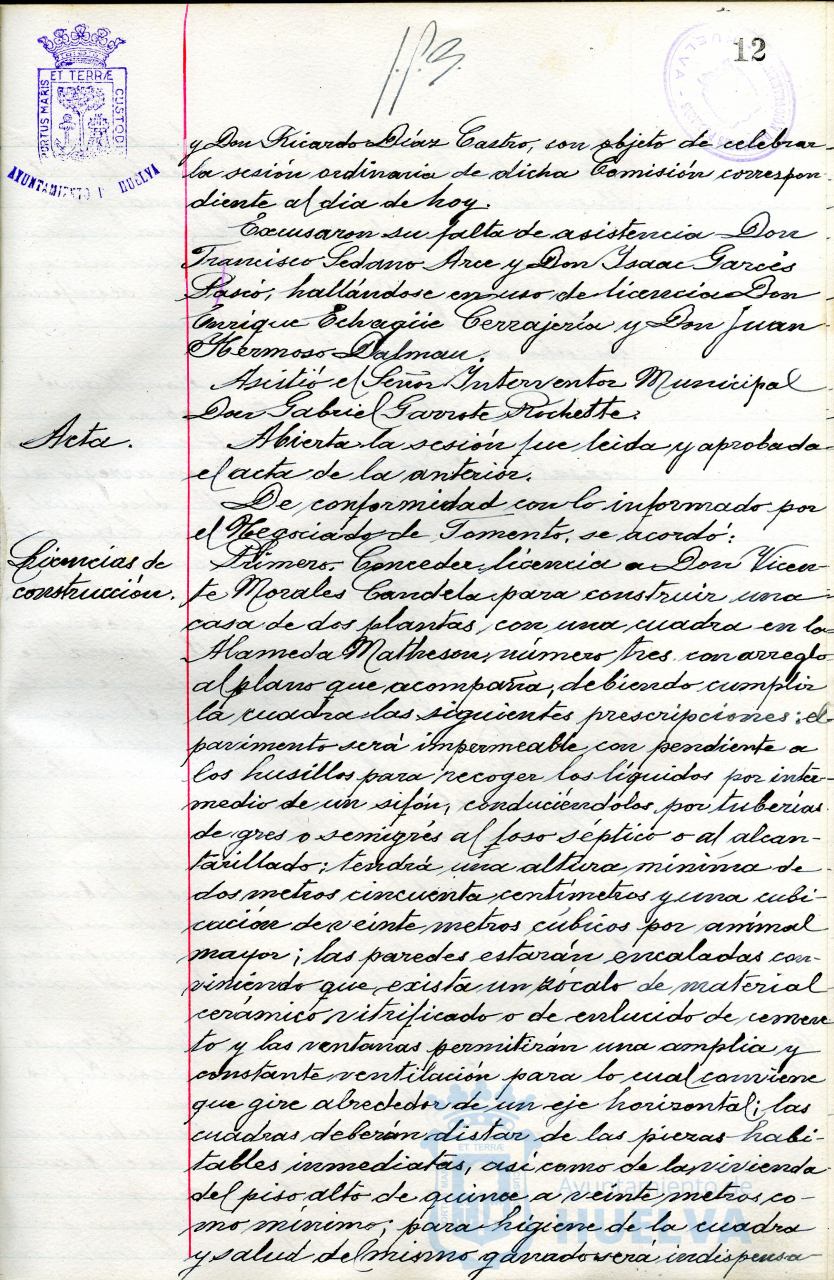 12
PORTUS MARIS ET TERRÆ CUSTODI
AYUNTAMIENTO HUELVA
HUELVA
y Don Ricardo Díaz Castro, con objeto de celebrar
la sesión ordinaria de dicha Comisión correspon-
diente al dia de hoy.
Excusaron su falta de asistencia Don
Francisco Sedano Arce y Don Isaac Garcés
Pascó, hallándose en uso de licencia Don
Enrique Echagüe Cerrajería y Don Juan
Hermoso Dalmau.
Asitió el Señor Interventor Municipal
Don Gabriel Garrote Rochette.
Acta.
Abierta la sesión fue leida y aprobada
el acta de la anterior.
De conformidad con lo informado por
el Negociado de Fomento, se acordó:
Licencias de
construcción.
Primero.- Conceder licencia a Don Vicen-
te Morales Candela para construir una
casa de dos plantas con una cuadra en la
Alameda Matheson, número tres con arreglo
al plano que acompaña, debiendo cumplir
la cuadra las siguientes prescripciones: el
pavimento será impermeable con pendiente a
los husillos para recoger los líquidos por inter-
medio de un sifón, conduciéndolos por tuberías
de gres o semigrés al foso séptico o al alcan-
tarillado; tendrá una altura mínima de
dos metros cincuenta centímetros y una cubi-
cación de veinte metros cúbicos por animal
mayor; las paredes estarán encaladas con-
viniendo que exista un zócalo de material
cerámico vitrificado o de enlucido de cemen-
to y las ventanas permitirán una amplia y
constante ventilación para lo cual conviene
que gire alrededor de un eje horizontal; las
cuadras deberán distar de las piezas habi-
tables inmediatas, así como de la vivienda
del piso alto de quince a veinte metros co-
mo mínimo; para higiene de la cuadra
y salud del mismo ganado será indispensa-
Ayuntamiento de
HUELVA